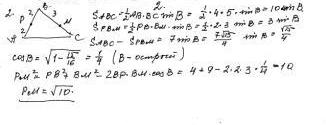 2.
2.
B
P 2 3
M
2
A C
S ABC = 1/2 AB·BC sin B = 1/2 · 4 · 5 · sin B = 10 sin B
S PBM = 1/2 PB·BM · sin B = 1/2 · 2 · 3 sin B = 3 sin B
S ABC − S PBM = 7 sin B = 7√15/4 sin B = √15/4
cos B = √(1 − 15/16) = 1/4 (B - острый)
PM² = PB² + BM² − 2PB·BM·cos B = 4 + 9 − 2·2·3·1/4 = 10
PM = √10.